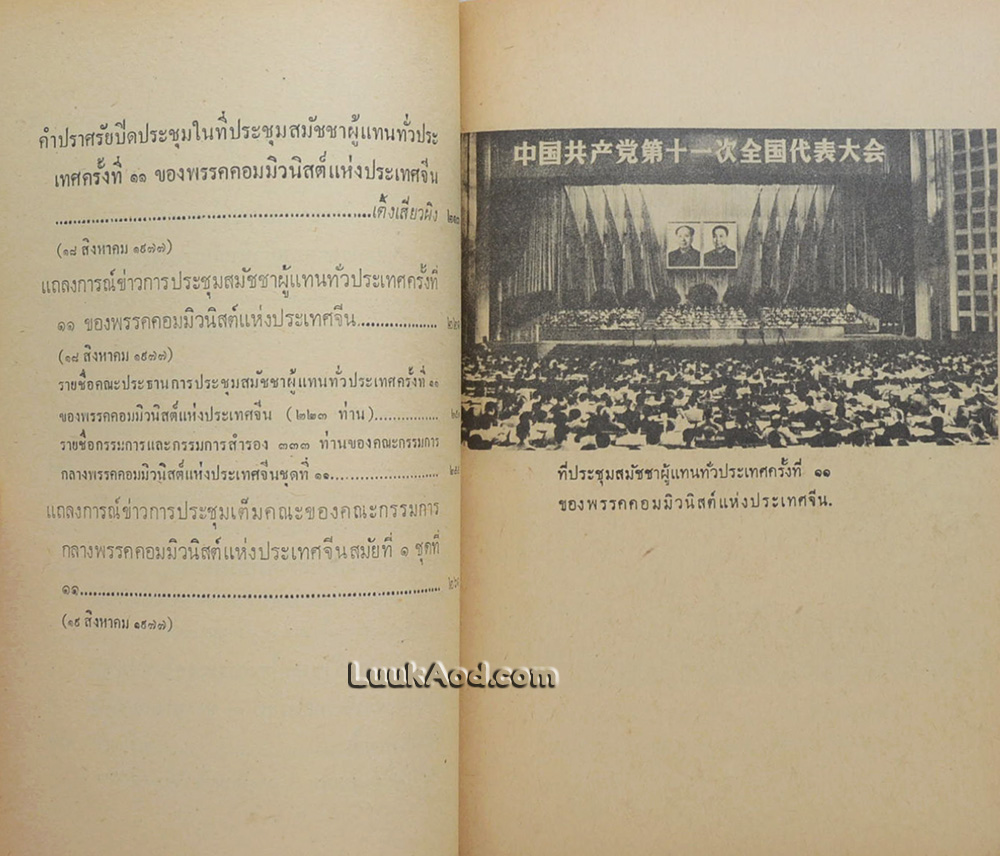 คำปราศรัยปิดประชุมในที่ประชุมสมัชชาผู้แทนทั่วประ
เทศครั้งที่ ๑๑ ของพรรคคอมมิวนิสต์แห่งประเทศจีน
........................................................เต้งเสี่ยวผิง
(๑๘ สิงหาคม ๑๙๗๗)
แถลงการณ์ข่าวการประชุมสมัชชาผู้แทนทั่วประเทศครั้งที่
๑๑ ของพรรคคอมมิวนิสต์แห่งประเทศจีน.................
(๑๘ สิงหาคม ๑๙๗๗)
รายชื่อคณะประธานการประชุมสมัชชาผู้แทนทั่วประเทศครั้งที่ ๑๑
ของพรรคคอมมิวนิสต์แห่งประเทศจีน (๒๒๓ ท่าน)................
รายชื่อกรรมการและกรรมการสำรอง ๓๓๓ ท่านของคณะกรรมการ
กลางพรรคคอมมิวนิสต์แห่งประเทศจีนชุดที่ ๑๑....................
แถลงการณ์ข่าวการประชุมเต็มคณะของคณะกรรมการ
กลางพรรคคอมมิวนิสต์แห่งประเทศจีนสมัยที่ ๑ ชุดที่
๑๑................................................................
(๑๙ สิงหาคม ๑๙๗๗)
中国共产党第十一次全国代表大会
ที่ประชุมสมัชชาผู้แทนทั่วประเทศครั้งที่ ๑๑
ของพรรคคอมมิวนิสต์แห่งประเทศจีน.
LuukAod.com